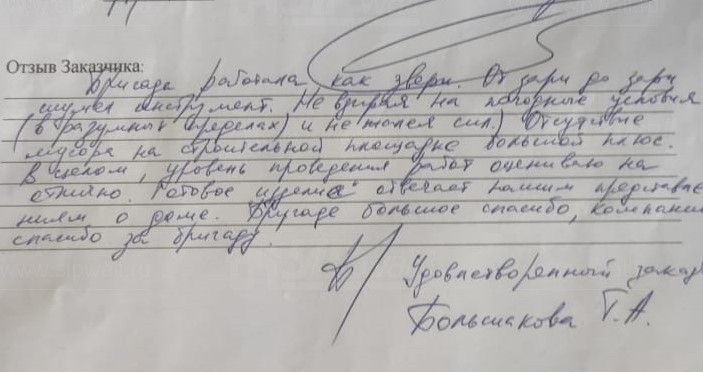 Отзыв Заказчика:
Бригада работала как звери. От зари до зари
шумел инструмент. Не взирая на погодные условия
(в разумных пределах) и не жалея сил.) Отсутствие
мусора на строительной площадке большой плюс.
В целом, уровень проведения работ оцениваю на
отлично. Готовое изделие отвечает нашим представле
ниям о доме. Бригаде большое спасибо, компании
спасибо за бригаду.
Удовлетворенный заказ
Большакова Т.А.